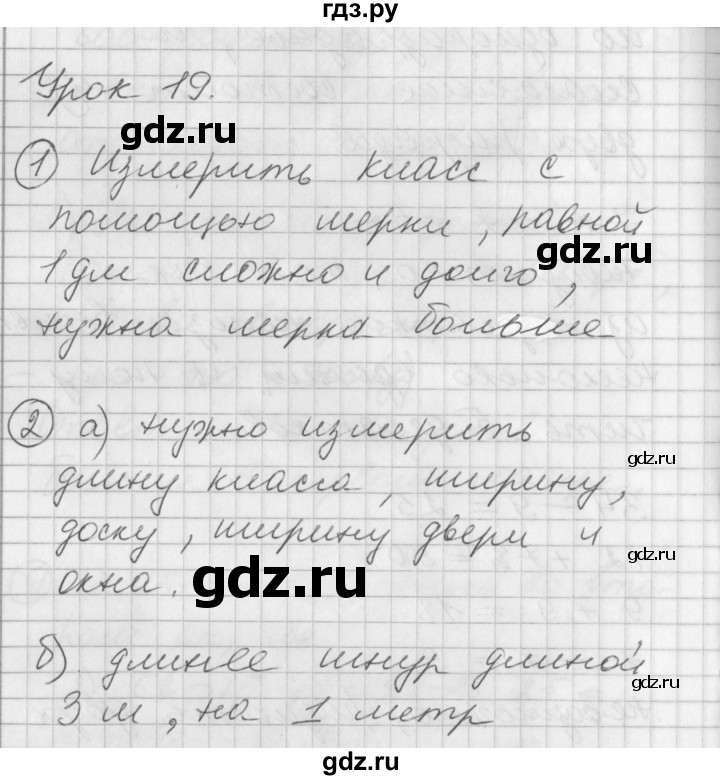 гдз.ру
Урок 19.
gdz.ru
① Измерить класс с
помощью мерки, равной
gdz.ru
1 дм сложно и долго,
нужна мерка больше
② а) нужно измерить
gdz.ru
длину класса, ширину,
доску, ширину двери и
gdz.ru
окна.
gdz.ru
б). длинее шнур длиной
gdz.ru
3 м, на 1 метр
gdz.ru